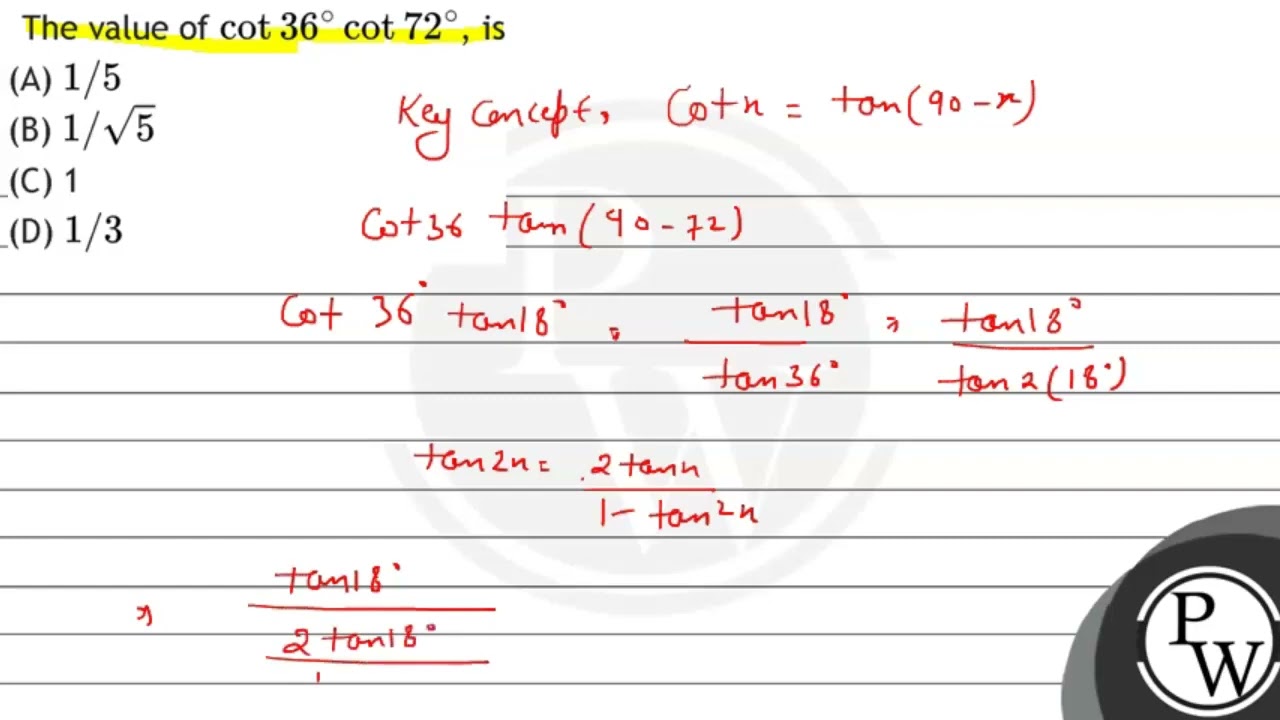 The value of cot 36° cot 72°, is
(A) 1/5
(B) 1/√5
(C) 1
(D) 1/3
Key Concept, Cotx = tan(90-x)
Cot36 tan(90-72)
Cot 36° tan18° = tan18° / tan36° = tan18° / tan2(18°)
tan2x = 2tanx / 1-tan²x
⇒ tan18° / 2tan18°
PW
PW